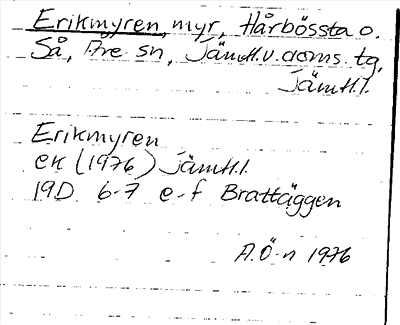 Erikmyren, myr, Hårbössta o.
Så, Åre sn, Jämtl.v.doms. tg,
Jämtl.l.
Erikmyren
ek (1976) Jämtl.l.
19D 6-7 e-f Brattäggen
A.Ö-n 1976